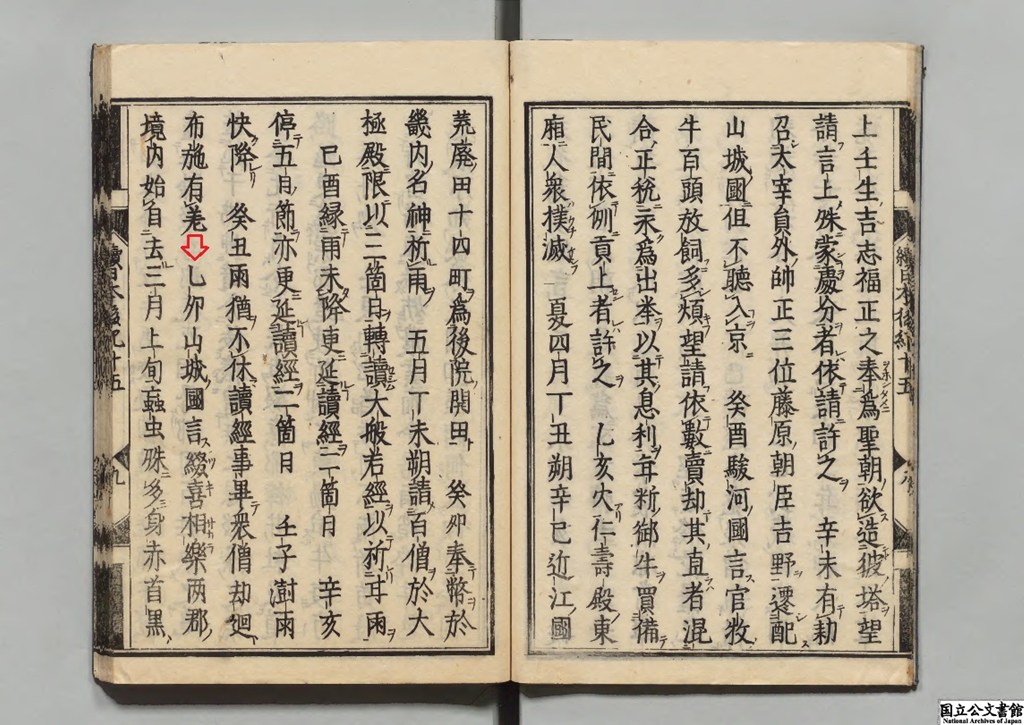 續日本後紀十五 八
上壬生吉志福正之奉爲聖朝欲造彼塔望
請言上殊蒙慶分者依請許之 辛未有勅
召太宰員外帥正三位藤原朝臣吉野遷配
山城國但不聽入京 癸酉駿河國言官牧
牛百頭放飼多煩望請依數賣却其直者混
合正税永爲出挙以其息利年粉御牛買備
民間依例貢上者許之 乙亥火仁壽殿東
廂人衆撲滅 夏四月丁丑朔辛巳近江國
荒廢田十四町爲後院開田 癸卯奉幣於
畿内名神祈雨 五月丁未朔請百僧於大
極殿限以二箇日轉讀大般若經以祈甘雨
己酉縁雨未降更延讀經二箇日 辛亥
停五日節亦更延讀經二箇日 壬子澍雨
快降 癸丑雨猶不休讀經事畢衆僧却廻
布施有差 乙卯山城國言綴喜相樂两郡
境内始自去三月上旬蝱虫殊多身赤首黒
續日本後紀十五 九
国立公文書館
National Archives of Japan